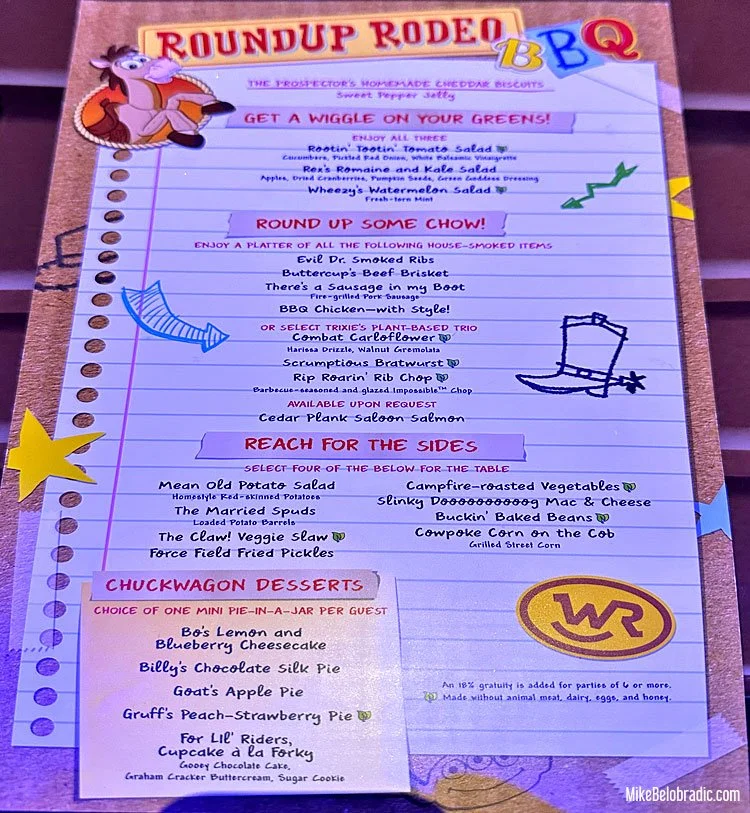 ROUNDUP RODEO BBQ
THE PROSPECTOR'S HOMEMADE CHEDDAR BISCUITS
Sweet Pepper Jelly
GET A WIGGLE ON YOUR GREENS!
ENJOY ALL THREE
Rootin' Tootin' Tomato Salad
Cucumbers, Pickled Red Onion, White Balsamic Vinaigrette
Rex's Romaine and Kale Salad
Apples, Dried Cranberries, Pumpkin Seeds, Green Goddess Dressing
Wheezy's Watermelon Salad
Fresh-torn Mint
ROUND UP SOME CHOW!
ENJOY A PLATTER OF ALL THE FOLLOWING HOUSE-SMOKED ITEMS
Evil Dr. Smoked Ribs
Buttercup's Beef Brisket
There's a Sausage in my Boot
Fire-grilled Pork Sausage
BBQ Chicken—with Style!
OR SELECT TRIXIE'S PLANT-BASED TRIO
Combat Carloflower
Harissa Drizzle, Walnut Gremolata
Scrumptious Bratwurst
Rip Roarin' Rib Chop
Barbecue-seasoned and glazed Impossible™ Chop
AVAILABLE UPON REQUEST
Cedar Plank Saloon Salmon
REACH FOR THE SIDES
SELECT FOUR OF THE BELOW FOR THE TABLE
Mean Old Potato Salad
Homestyle Red-skinned Potatoes
The Married Spuds
Loaded Potato Barrels
The Claw! Veggie Slaw
Force Field Fried Pickles
Campfire-roasted Vegetables
Slinky Doooooooooog Mac & Cheese
Buckin' Baked Beans
Cowpoke Corn on the Cob
Grilled Street Corn
CHUCKWAGON DESSERTS
CHOICE OF ONE MINI PIE-IN-A-JAR PER GUEST
Bo's Lemon and
Blueberry Cheesecake
Billy's Chocolate Silk Pie
Goat's Apple Pie
Gruff's Peach-Strawberry Pie
For Lil' Riders,
Cupcake à la Forky
Gooey Chocolate Cake,
Graham Cracker Buttercream, Sugar Cookie
WR
An 18% gratuity is added for parties of 6 or more.
Made without animal meat, dairy, eggs, and honey.
MikeBelobradic.com